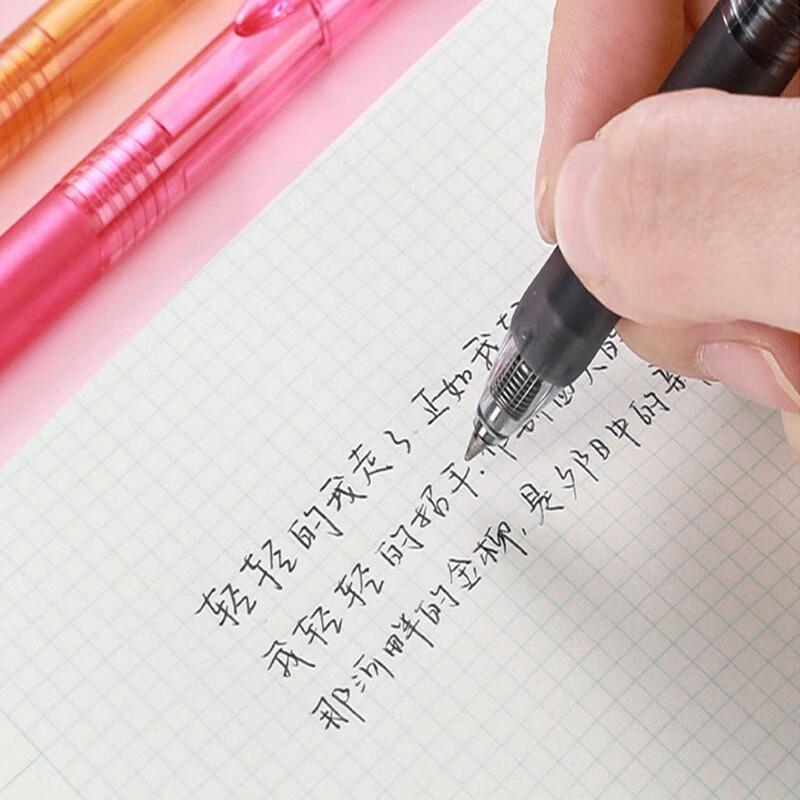 轻轻的我走了.正如我
我轻轻的招手.作别西天的
那河畔的金柳.是夕阳中的新